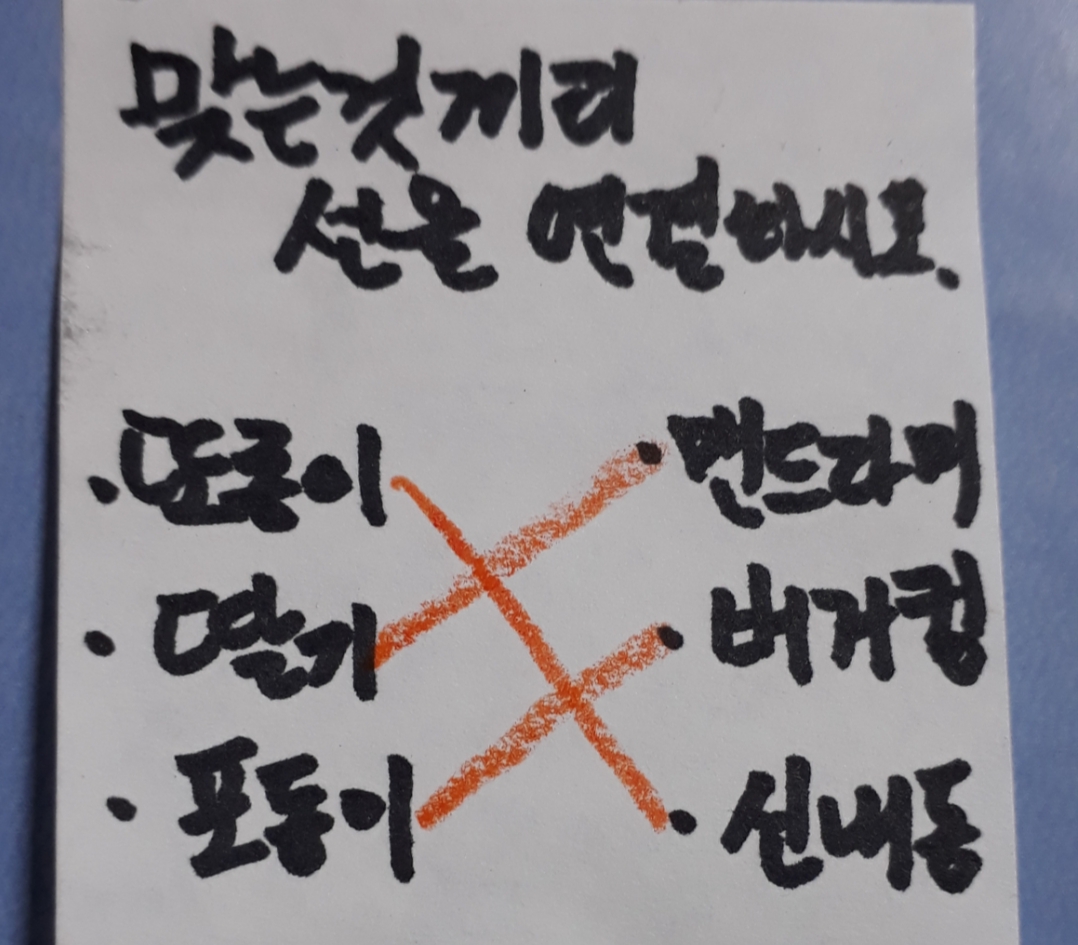 맞는것끼리
선을 연결하시오.
·또롱이 ·맨드라미
·딸기 ·버거킹
·포동이 ·신내동